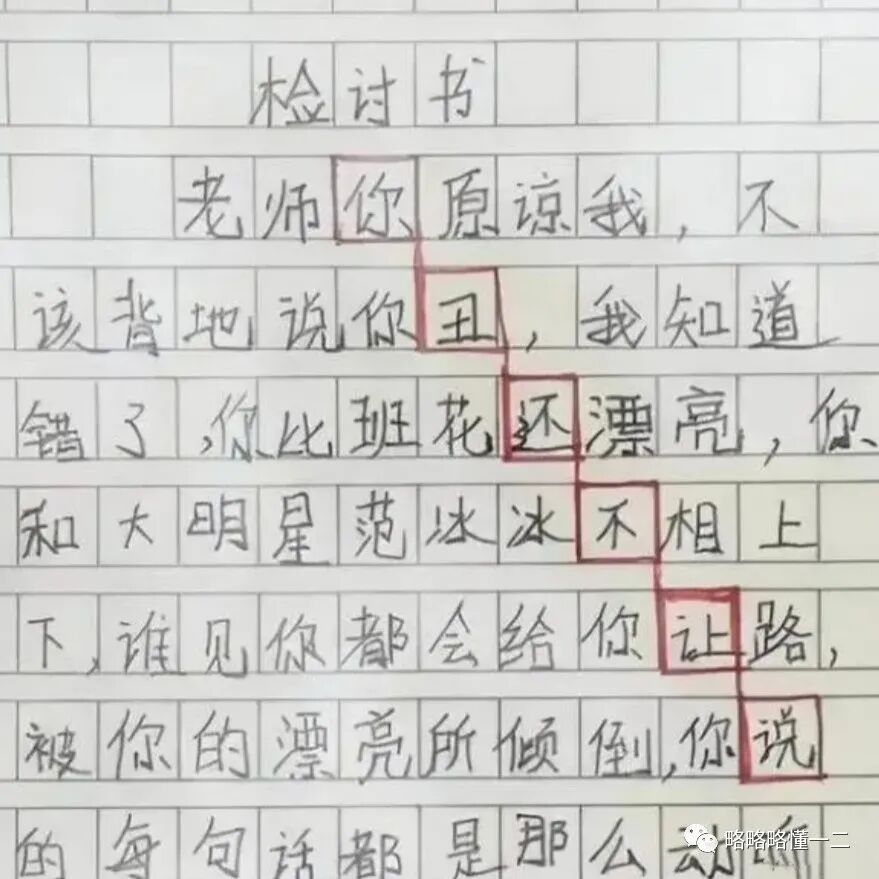 检讨书
老师你原谅我，不
该背地说你丑，我知道
错了，你比班花还漂亮，你
和大明星范冰冰不相上
下，谁见你都会给你让路，
被你的漂亮所倾倒，你说
的每句话都是那么动听
略略略懂一二